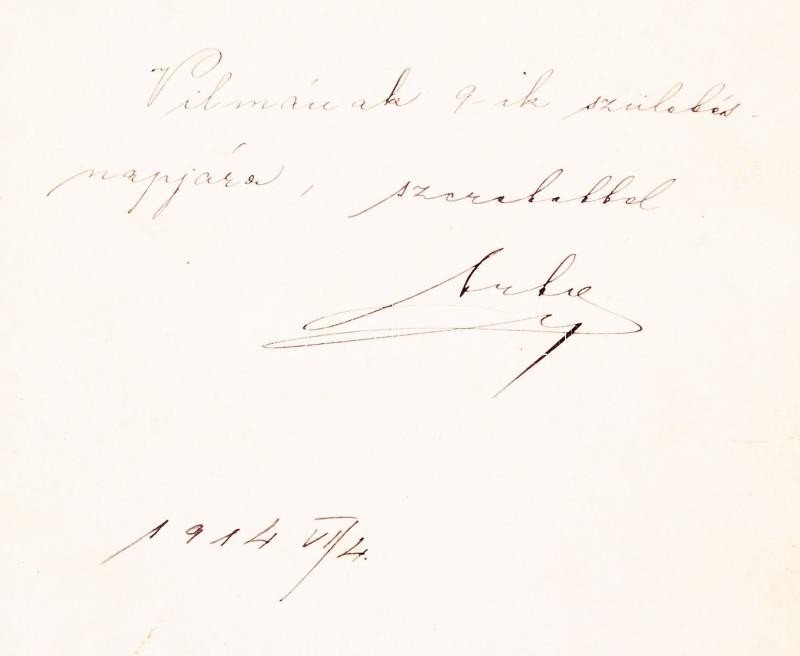 Vilmának 9-ik születés-
napjára, szeretettel
1914 VI/4.